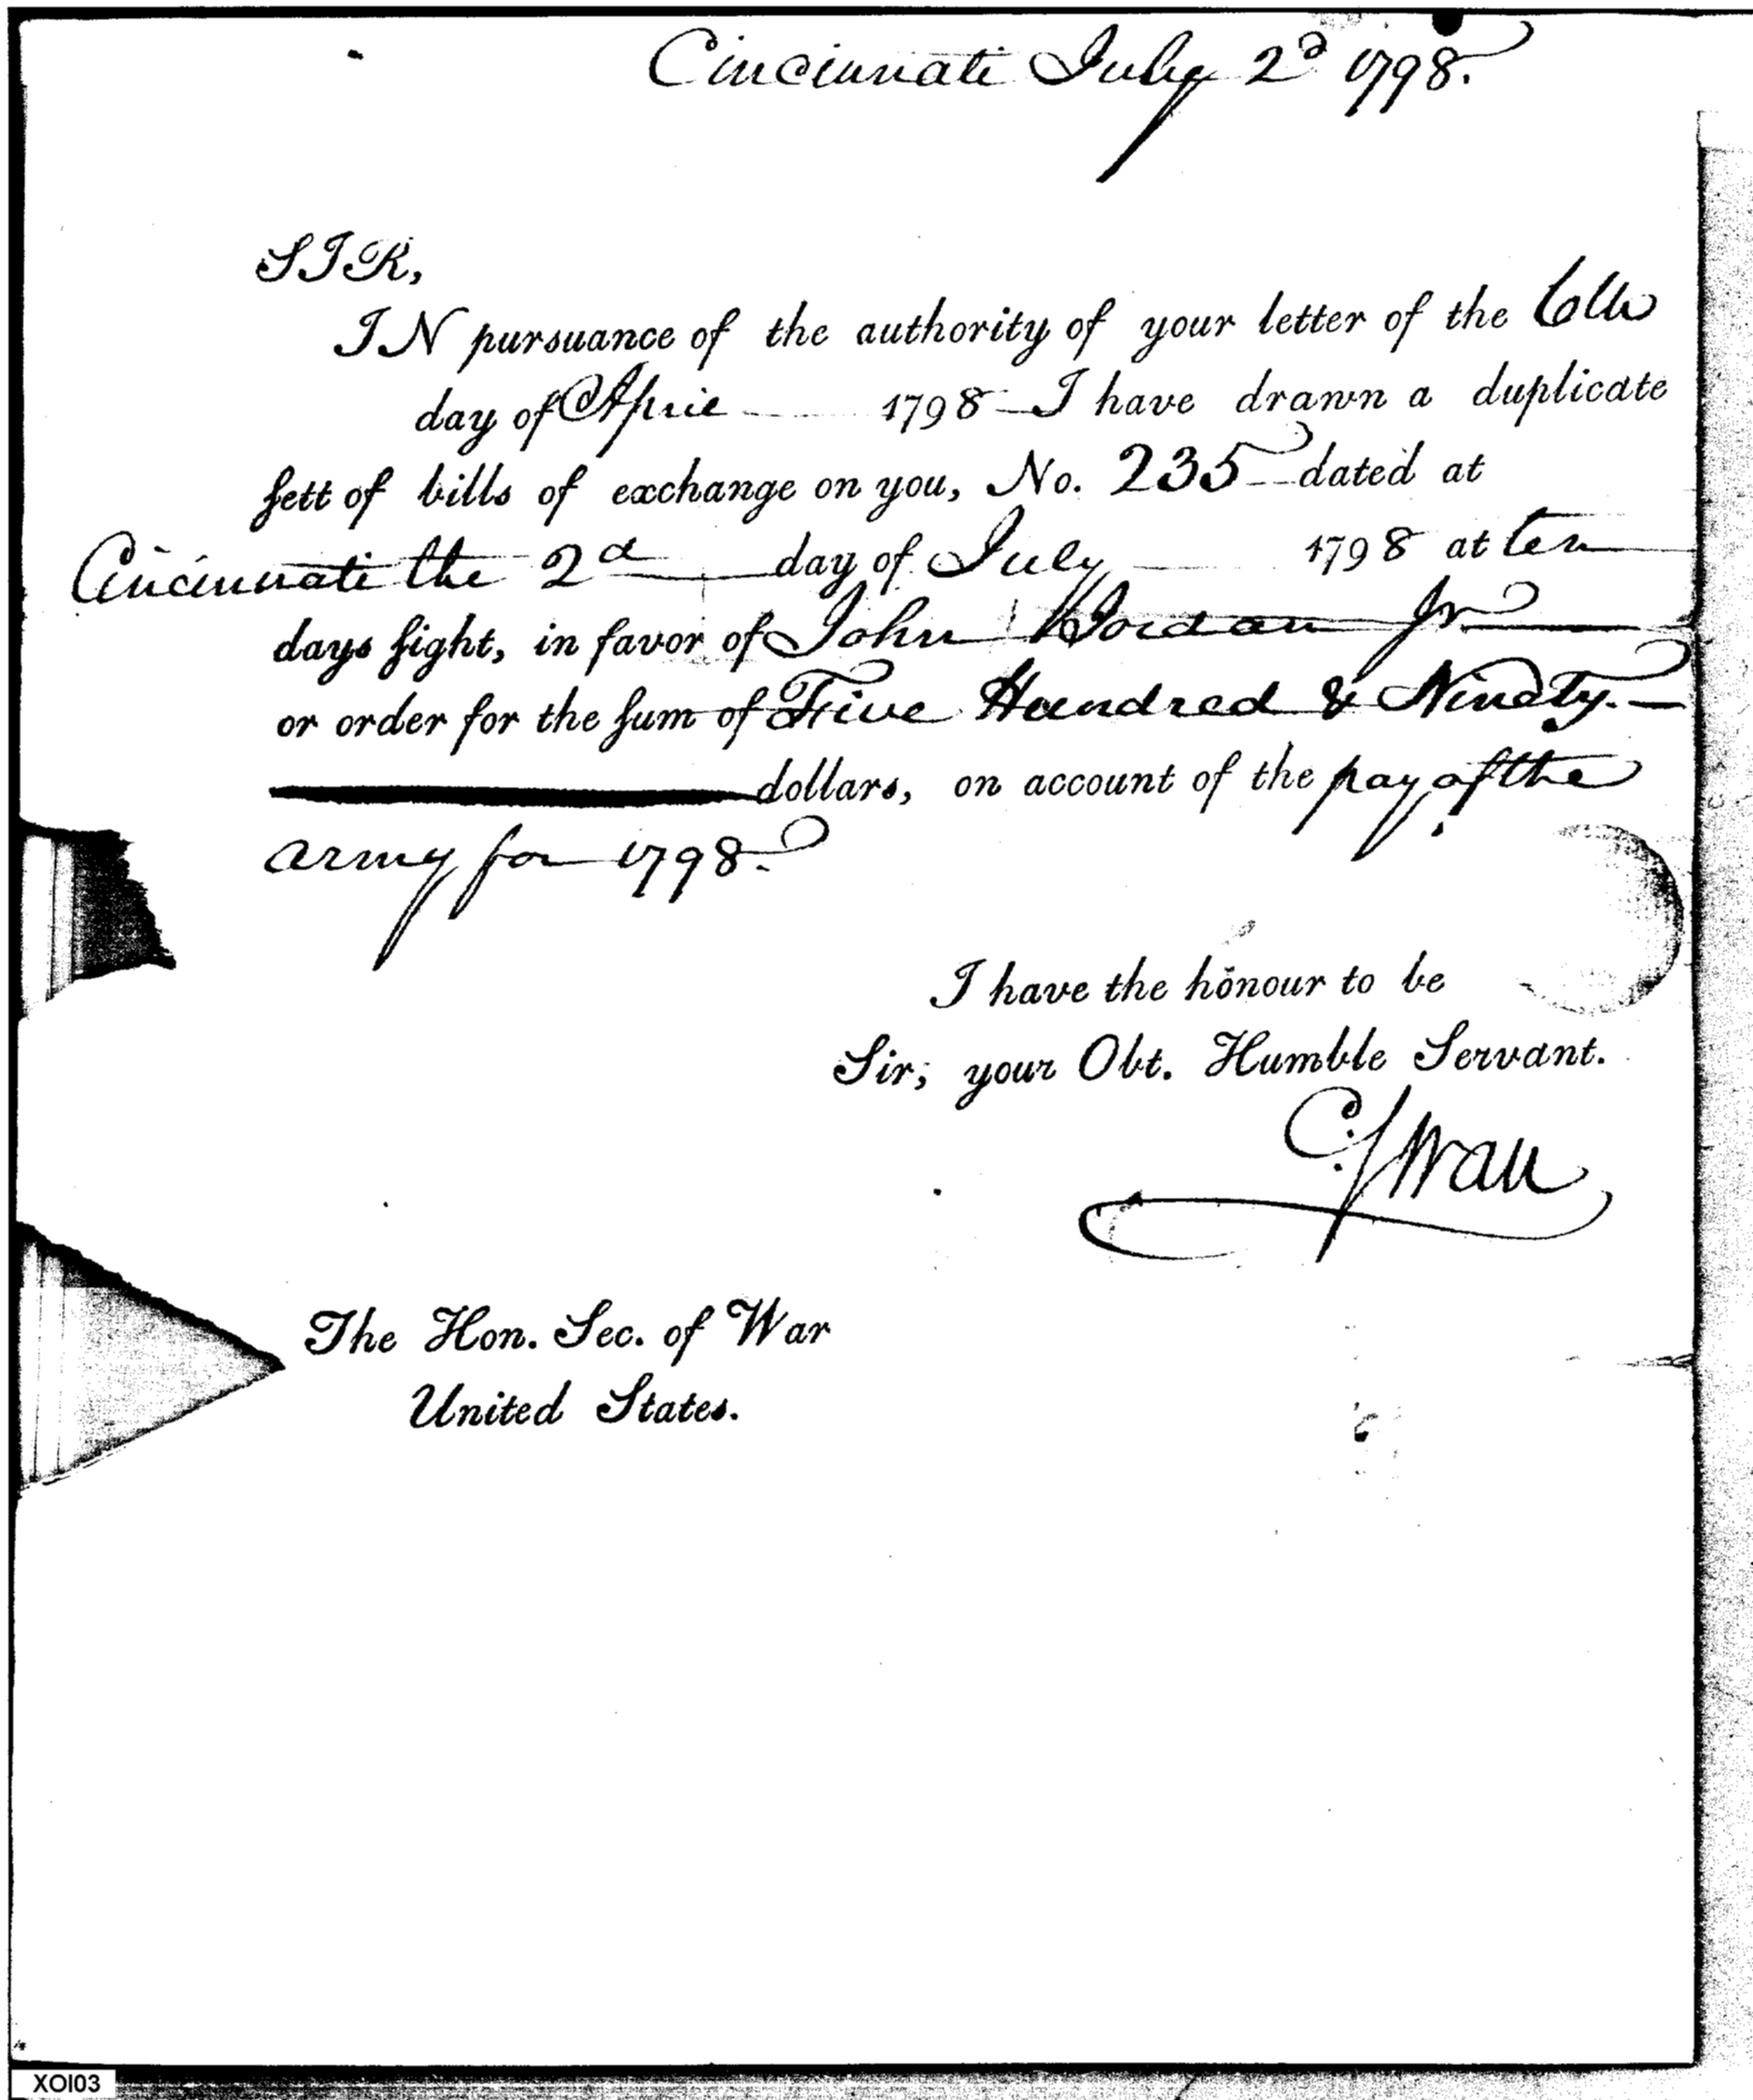 Cincinnati July 2d 1798.
SIR,
IN pursuance of the authority of your letter of the 6th
day of April 1798 I have drawn a duplicate
sett of bills of exchange on you, No. 235 dated at
Cincinnati the 2d day of July 1798 at ten
days sight, in favor of John Jordan Jr
or order for the sum of Five Hundred & Ninety.
dollars, on account of the pay of the
army for 1798.
I have the honour to be
Sir, your Obt. Humble Servant.
C. Swan
The Hon. Sec. of War
United States.
XOI03